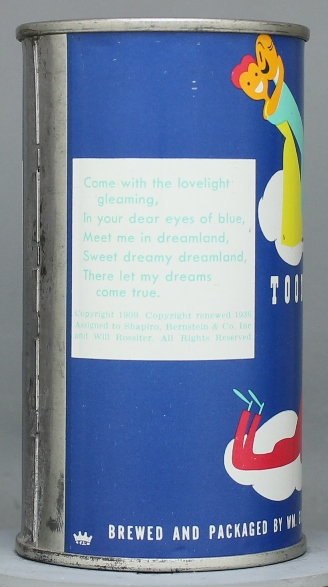 Come with the lovelight
gleaming,
In your dear eyes of blue,
Meet me in dreamland,
Sweet dreamy dreamland,
There let my dreams
come true.
Copyright 1909. Copyright renewed 1936
Assigned to Shapiro, Bernstein & Co. Inc
and Will Rossiter. All Rights Reserved
TOO
BREWED AND PACKAGED BY WM.